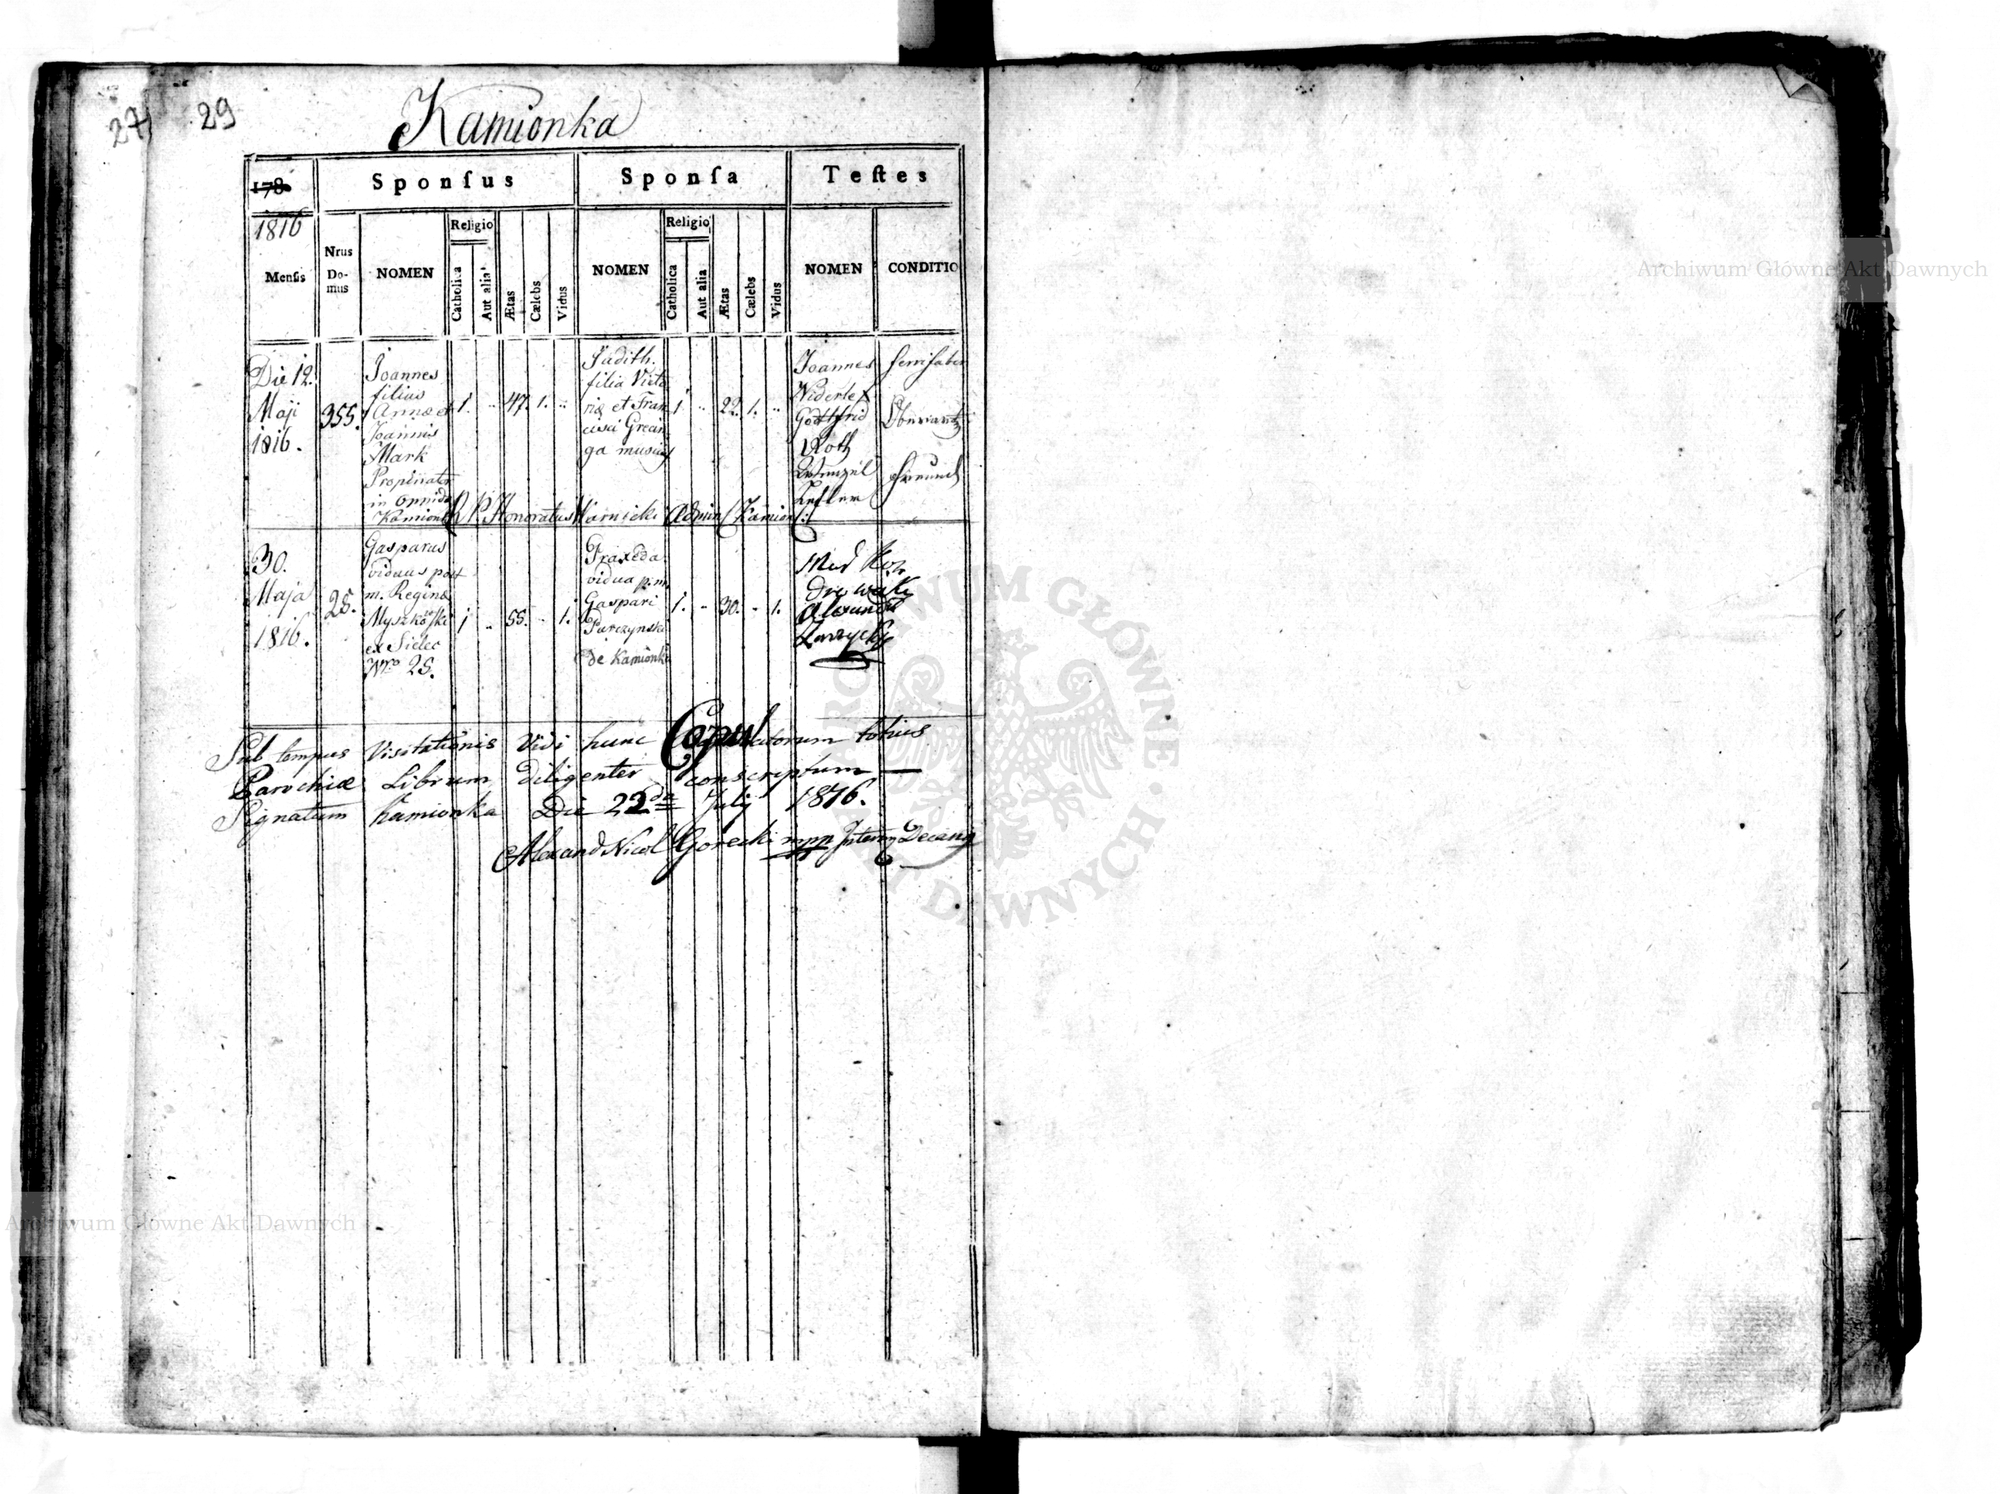 27
29
Kamionka
178
Sponſus
Sponſa
Teſtes
1816
Menſis
Nrus
Do-
mus
NOMEN
Religio
Catholica
Aut alia
Ætas
Cælebs
Vidus
NOMEN
Religio
Catholica
Aut alia
Ætas
Cælebs
Vidus
NOMEN
CONDITIO
Die 12.
Maji
1816.
355.
Joannes
filius
Annæ et
Joannis
Mark
Propinator
in oppido
Kamionka
1. „ 47. 1. „
Judith
filia Victo
riæ et Fran
cisci
ga musici
1 „ 22. 1. „
Joannes
Gottfrid
Roth
Wenzel
Keſsler
Oberarzt
Freund
R. P. Honoratus Admin Kamion
30.
Maja
1816.
25.
Gasparus
viduus post
m. Regina
ex Sielec
Nro 25.
1 „ 55. „ 1.
Praxeda
vidua p. m.
Gaspari
Parczynski
de Kamionka
1. „ 30. „ 1.
Alexander
Zarzycky
Sub tempus Visitationis Vidi hunc Copulatorum totius
Parochiæ Librum, diligenter conscriptum —
Signatum Kamionka Die 22da July 1816.
Alexand Nicol Gorecki mpp Interim Decang
Archiwum Główne Akt Dawnych
Archiwum Główne Akt Dawnych
ARCHIWUM GŁÓWNE AKT DAWNYCH